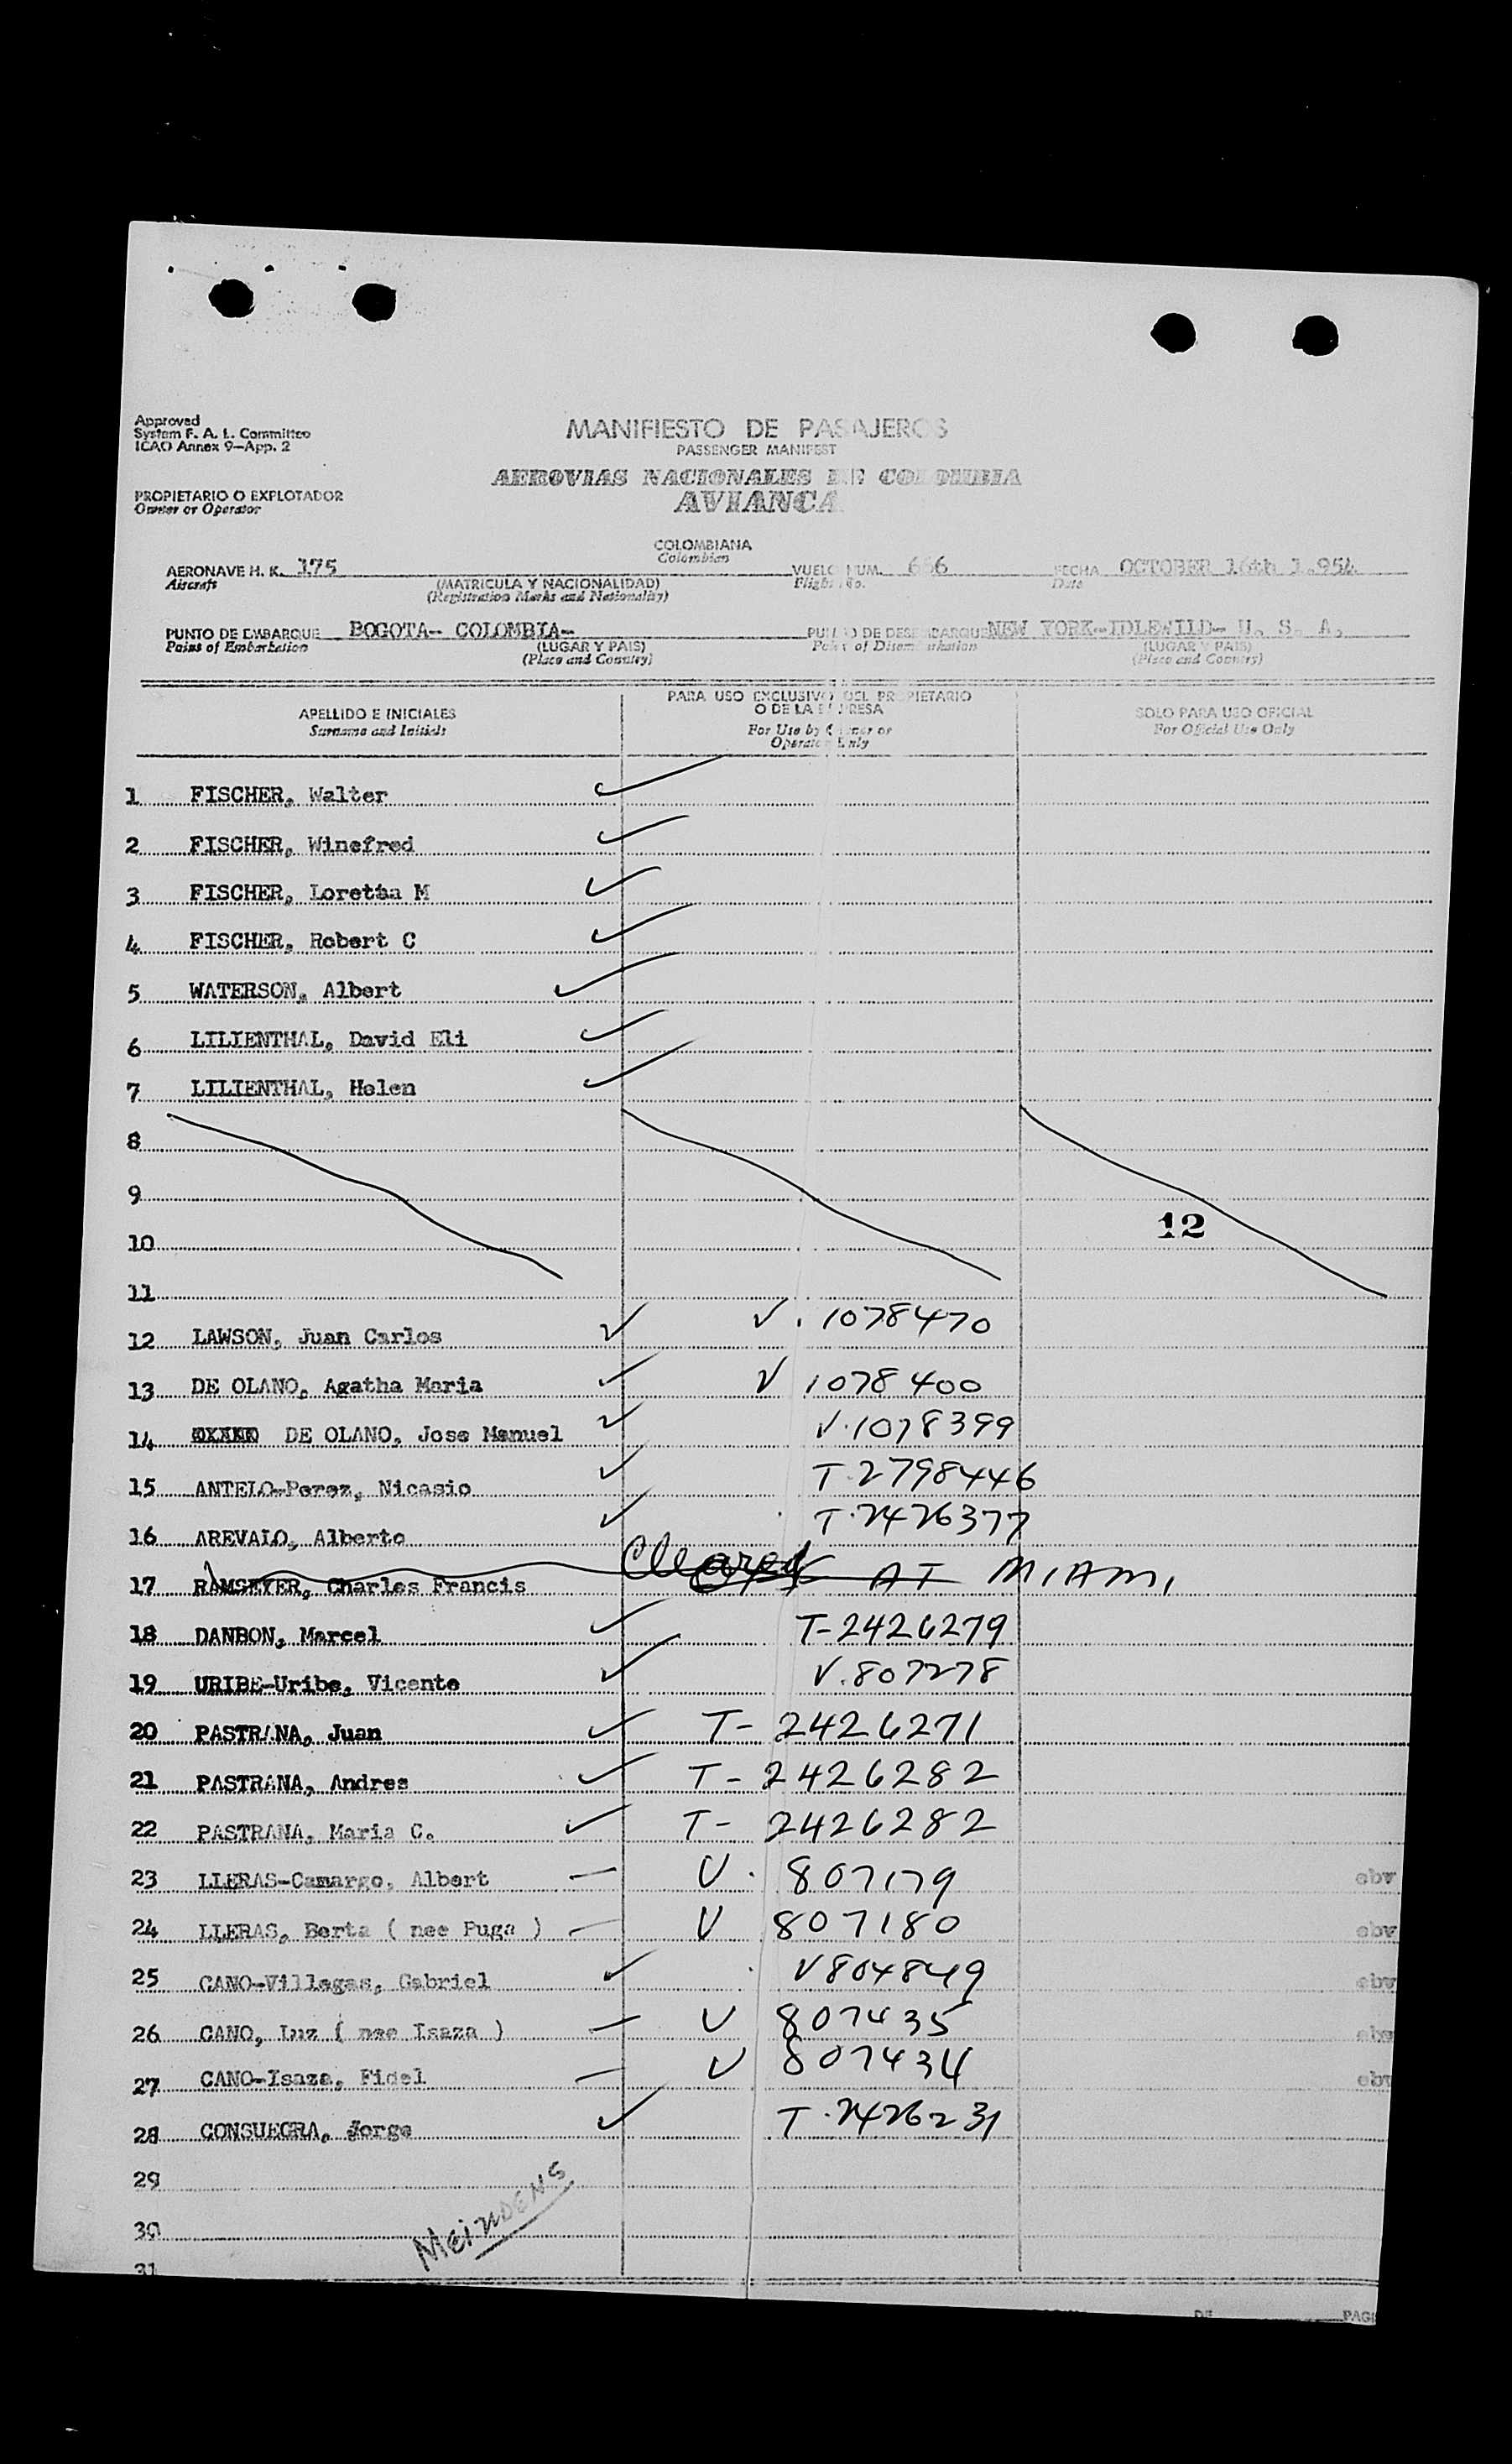 Approved
System F. A. L. Committee
ICAO Annex 9—App. 2
MANIFIESTO DE PASAJEROS
PASSENGER MANIFEST
AEROVIAS NACIONALES DE COLOMBIA
AVIANCA
PROPIETARIO O EXPLOTADOR
Owner or Operator
COLOMBIANA
Colombian
AERONAVE H. K. 175 VUELO NUM. 666 FECHA OCTOBER 16th 1.954
Aircraft (MATRICULA Y NACIONALIDAD) Flight No. Date
(Registration Marks and Nationality)
PUNTO DE EMBARQUE BOGOTA- COLOMBIA- PUNTO DE DESEMBARQUE NEW YORK-IDLEWILD- U. S. A.
Points of Embarkation (LUGAR Y PAIS) Point of Disembarkation (LUGAR Y PAIS)
(Place and Country) (Place and Country)
APELLIDO E INICIALES
Surname and Initials
PARA USO EXCLUSIVO DEL PROPIETARIO
O DE LA EMPRESA
For Use by Owner or
Operator Only
SOLO PARA USO OFICIAL
For Official Use Only
1 FISCHER, Walter
2 FISCHER, Winefred
3 FISCHER, Loretta M
4 FISCHER, Robert C
5 WATERSON, Albert
6 LILIENTHAL, David Eli
7 LILIENTHAL, Helen
8
9
12
10
11
12 LAWSON, Juan Carlos V. 1078470
13 DE OLANO, Agatha Maria V 1078400
14 DE OLANO, Jose Manuel V.1078399
15 ANTELO-Perez, Nicasio T.2798446
16 AREVALO, Alberto T.2426377
17 RAMSEYER, Charles Francis Cleared AT MIAMI
18 DANBON, Marcel T-2426279
19 URIBE-Uribe, Vicente V.807278
20 PASTRANA, Juan T-2426271
21 PASTRANA, Andres T-2426282
22 PASTRANA, Maria C. T-2426282
23 LLERAS-Camargo, Albert V. 807179 ebv
24 LLERAS, Berta ( nee Puga ) V 807180 ebv
25 CANO-Villegas, Gabriel V804849 ebv
26 CANO, Luz ( nee Isaza ) V 807435 ebv
27 CANO-Isaza, Fidel V 807434 ebv
28 CONSUEGRA, Jorge T.2426231
29
30
31